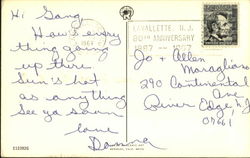 Hi Gang,
How's every
thing going
up there
Sun's hot
as anything
See ya soon
love
LAVALLETTE, N.J.
80TH ANNIVERSARY
1887 - 1967
Jo + Allan
290 Continental
Ave
River Edge N.J.
07661